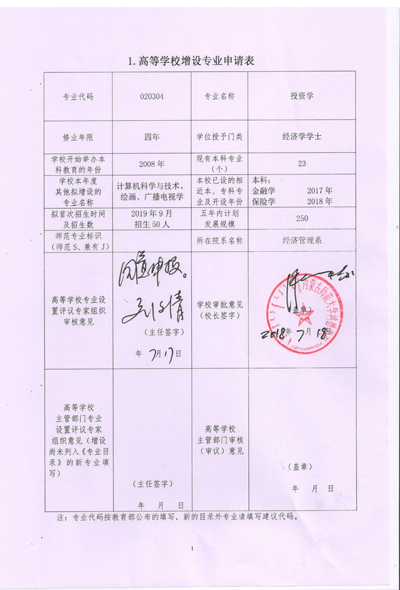 1.高等学校增设专业申请表
专业代码 020304 专业名称 投资学
修业年限 四年 学位授予门类 经济学学士
学校开始举办本
科教育的年份 2008年 现有本科专业
（个） 23
学校本年度
其他拟增设的
专业名称 计算机科学与技术、
绘画、广播电视学 本校已设的相
近本、专科专
业及开设年份 本科：
金融学 2017年
保险学 2018年
拟首次招生时间
及招生数 2019年9月
招生50人 五年内计划
发展规模 250
师范专业标识
（师范S、兼有J） 所在院系名称 经济管理系
高等学校专业设
置评议专家组织
审核意见
同意申报。
（主任签字）
年 7月17日
学校审批意见
（校长签字）
（盖章）
2018年 7月 18日
高等学校
主管部门专业
设置评议专家
组织意见（增设
尚未列入《专业目
录》的新专业填
写）
（主任签字）
年 月 日
高等学校
主管部门审核
（审议）意见
（盖章）
年 月 日
注：专业代码按教育部公布的填写，新的目录外专业请填写建议代码。
1